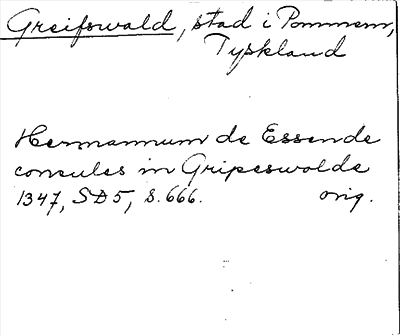 Greifswald, stad i Pommern,
Tyskland
Hermannum de Essende
consules in Gripeswolde
1347, SD5, S. 666. orig.